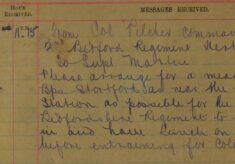 HOUR RECEIVED.
MESSAGES RECEIVED.
From Col Pilcher Comman
2nd Bedford Regiment
to Supt
Please arrange for a mea
Bps Stortford as near the
Station as possible for the
Bedfordshire Regiment to
in and have Lunch on
before entraining for Colc